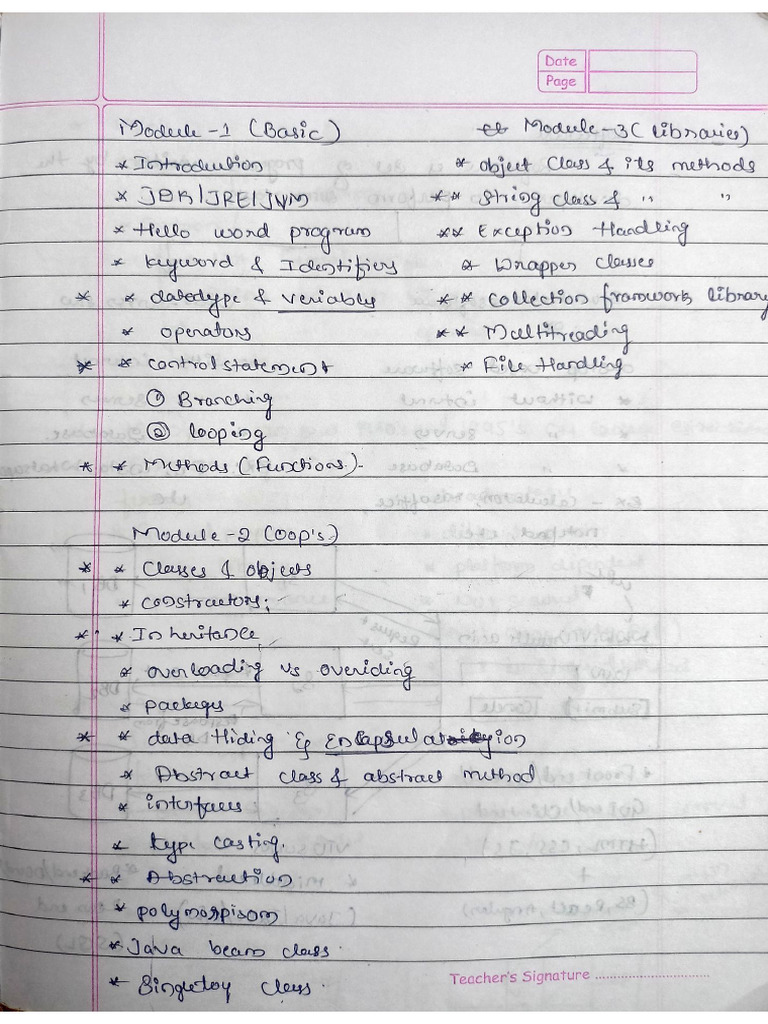 Date
Page
Module - 1 (Basic)
* Introduction
* JDK/JRE/JVM
* Hello word program
* keyword & Identifiers
* * datatype & veriables
* operators
* * control statement
① Branching
② looping
* * Methods (Functions).
Module - 2 (OOP's)
* * Classes & objects
* constructors;
* * Inheritance
* overloading vs overiding
* packeges
* * data Hiding & Encapsulation
* Abstract class & abstract method
* interfaces
* type casting.
* * Abstraction
* polymorpisom
* Java bean class.
* Singleton class.
Module - 3 (libraries)
* object class & its methods
* * String class & " "
* * Exception Handling
* Wrapper classes
* * collection framwork library
* * Multitreading
* File Handling
Teacher's Signature